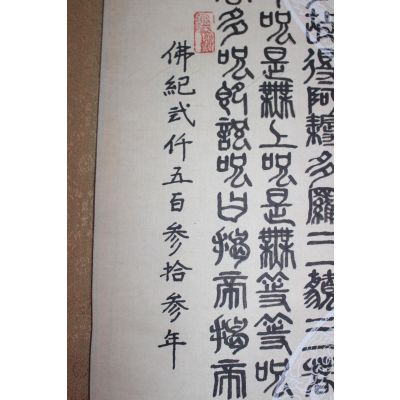 故得阿耨多羅三藐三菩
呪是無上呪是無等等呪
多呪即說呪曰揭帝揭帝
佛紀弍仟五百參拾參年